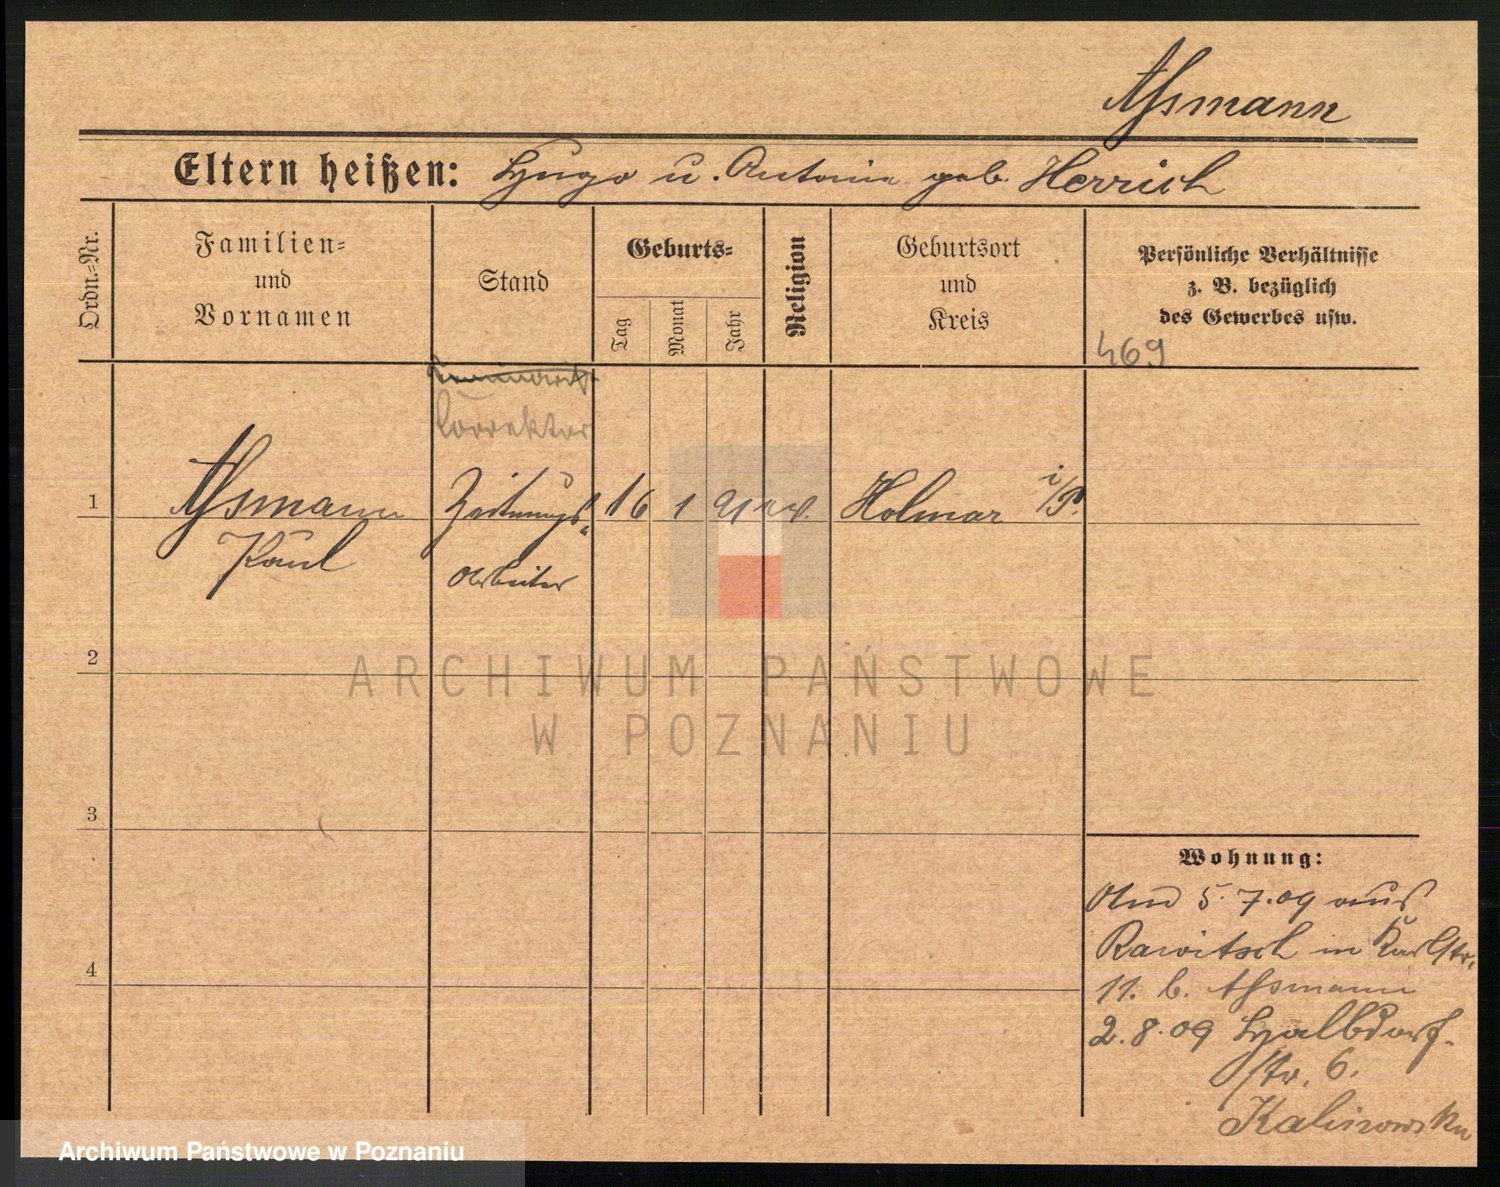 Assmann
Eltern heißen: Hugo u. Antonie geb. Herrich
Ordn.=Nr.
Familien=
und
Vornamen
Stand
Geburts=
Tag
Monat
Jahr
Religion
Geburtsort
und
Kreis
Persönliche Verhältnisse
z. B. bezüglich
des Gewerbes usw.
469
Korrektor
1
Assmann
Paul
Zeitungs-
arbeiter
16 1 91 ev. Kolmar i/P.
2
3
4
Wohnung:
Am 5.7.09 aus
Rawitsch in Karlstr.
11. b. Assmann
2.8.09 Halbdorf-
str. 6.
ARCHIWUM PAŃSTWOWE
W POZNANIU
Archiwum Państwowe w Poznaniu